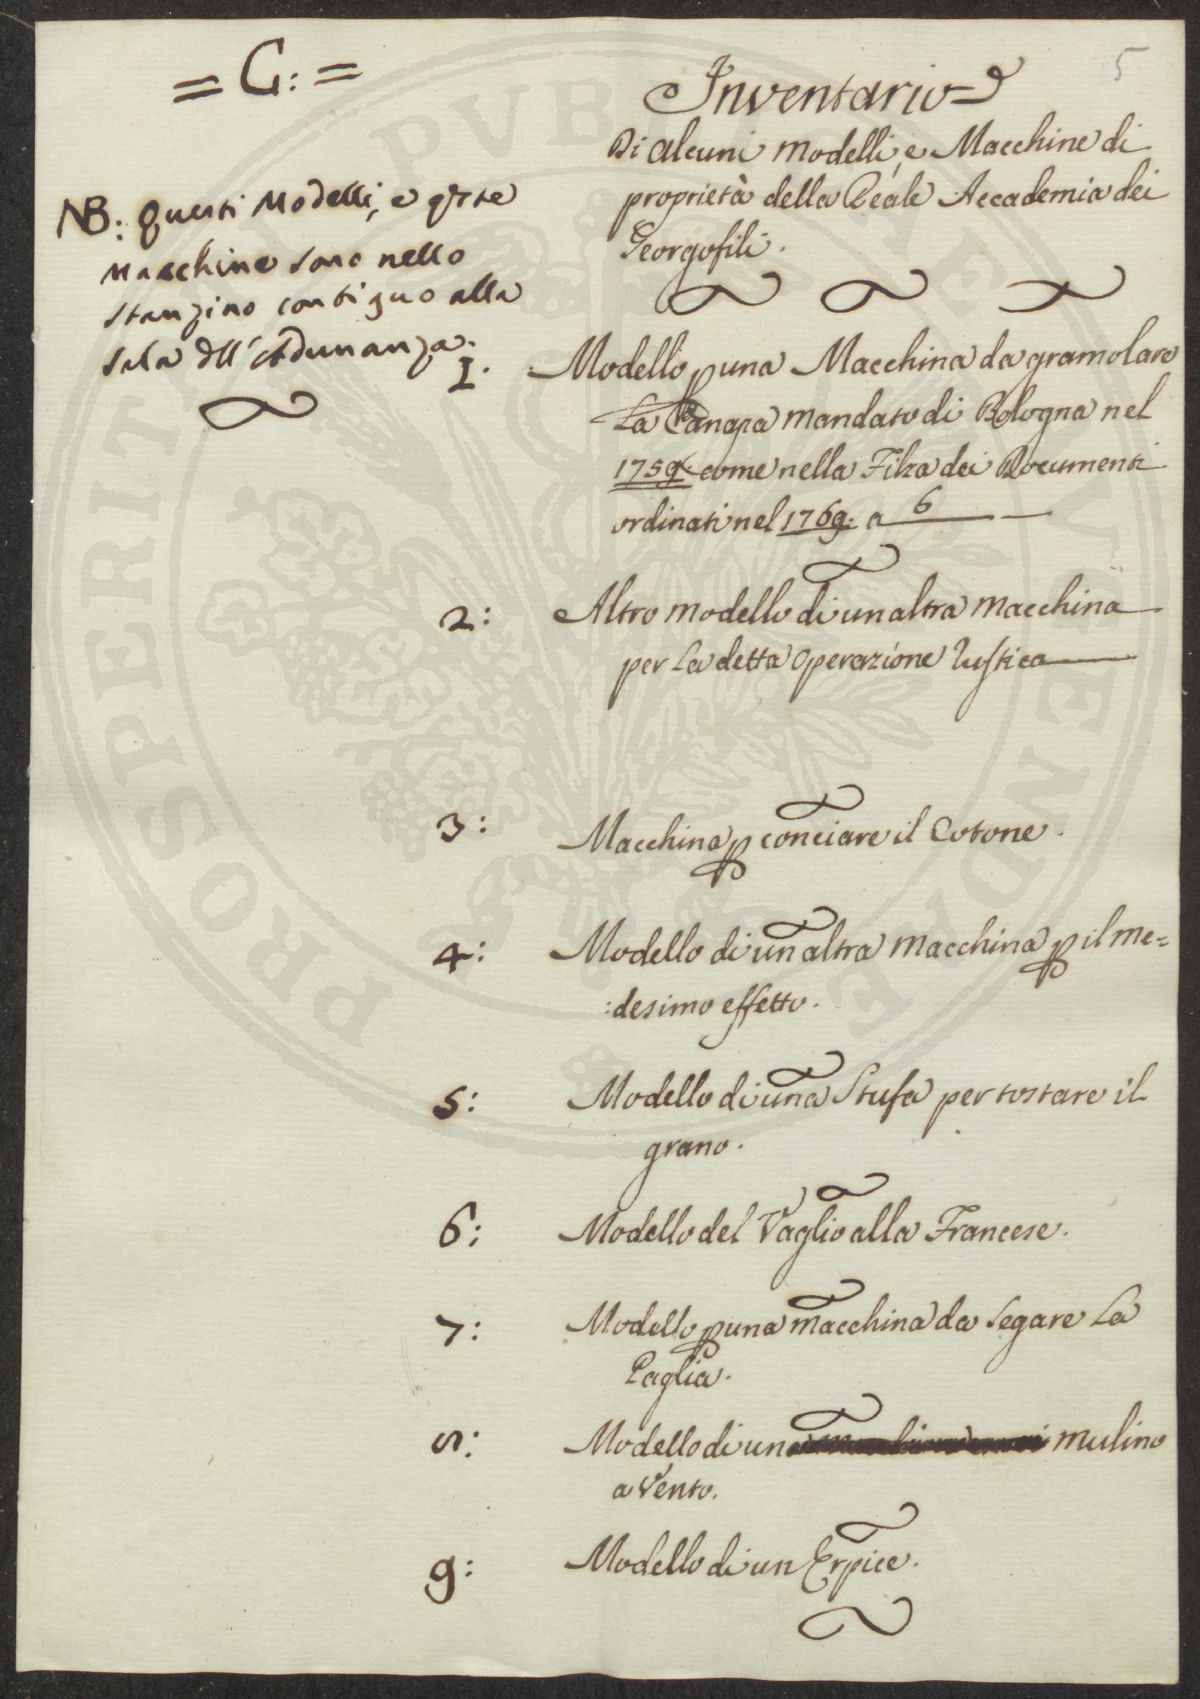 = C: =
5
Inventario
Di alcuni Modelli, e Macchine di
proprietà della Reale Accademia dei
Georgofili.
NB: Questi Modelli, e qste
Macchine sono nello
stanzino contiguo alla
sala dll' Adunanza.
I. Modello p una Macchina da gramolare
La Canapa mandato di Bologna nel
1759. come nella Filza dei Documenti
ordinati nel 1769. a 6
2: Altro modello di un altra macchina
per la detta operazione rustica
3: Macchina p conciare il Cotone.
4: Modello di un altra macchina p il me=
:desimo effetto.
5: Modello di una Stufa per tostare il
grano.
6: Modello del Vaglio alla Francese.
7: Modello p una macchina da segare la
Paglia.
8: Modello di un mulino
a Vento.
9: Modello di un Erpice.
PROSPERITATI PUBLICAE AUGENDAE